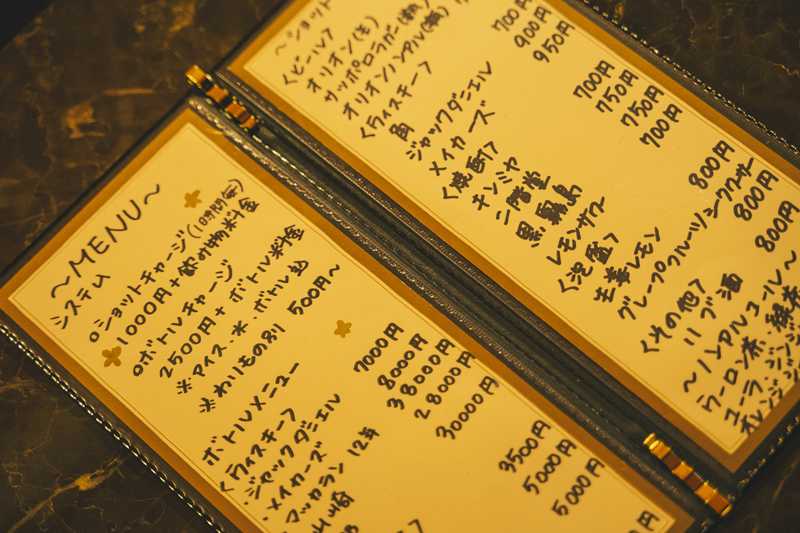 〜MENU〜
システム
○ショットチャージ(1時間制)
1000円+飲み物料金
○ボトルチャージ
2500円+ボトル料金
※アイス、水、ボトル込
※わりもの別 500円〜
ボトルメニュー
<ウイスキー>
ジャックダニエル 7000円
メイカーズ 8000円
マッカラン12年 38000円
山崎 28000円
30000円
3500円
5000円
5000円
円
〜ショット
<ビール>
オリオン(生) 700円
サッポロラガー(瓶) 900円
オリオンノンアル(瓶) 950円
<ウイスキー>
角 700円
ジャックダニエル 750円
メイカーズ 750円
<焼酎> 700円
ナンミヤ
二階堂
黒霧島 800円
レモンサワー
<泡盛> 800円
生搾レモン 800円
グレープフルーツ/シークワーサー
<その他>
ハブ酒 800円
〜ノンアルコール〜
ウーロン茶、緑茶
コーラ、ジン
オレンジジ